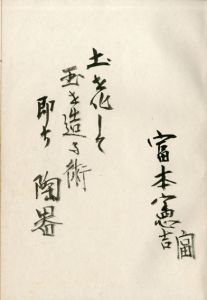 土を化して
玉を造る術
即ち陶器
富本憲吉
富